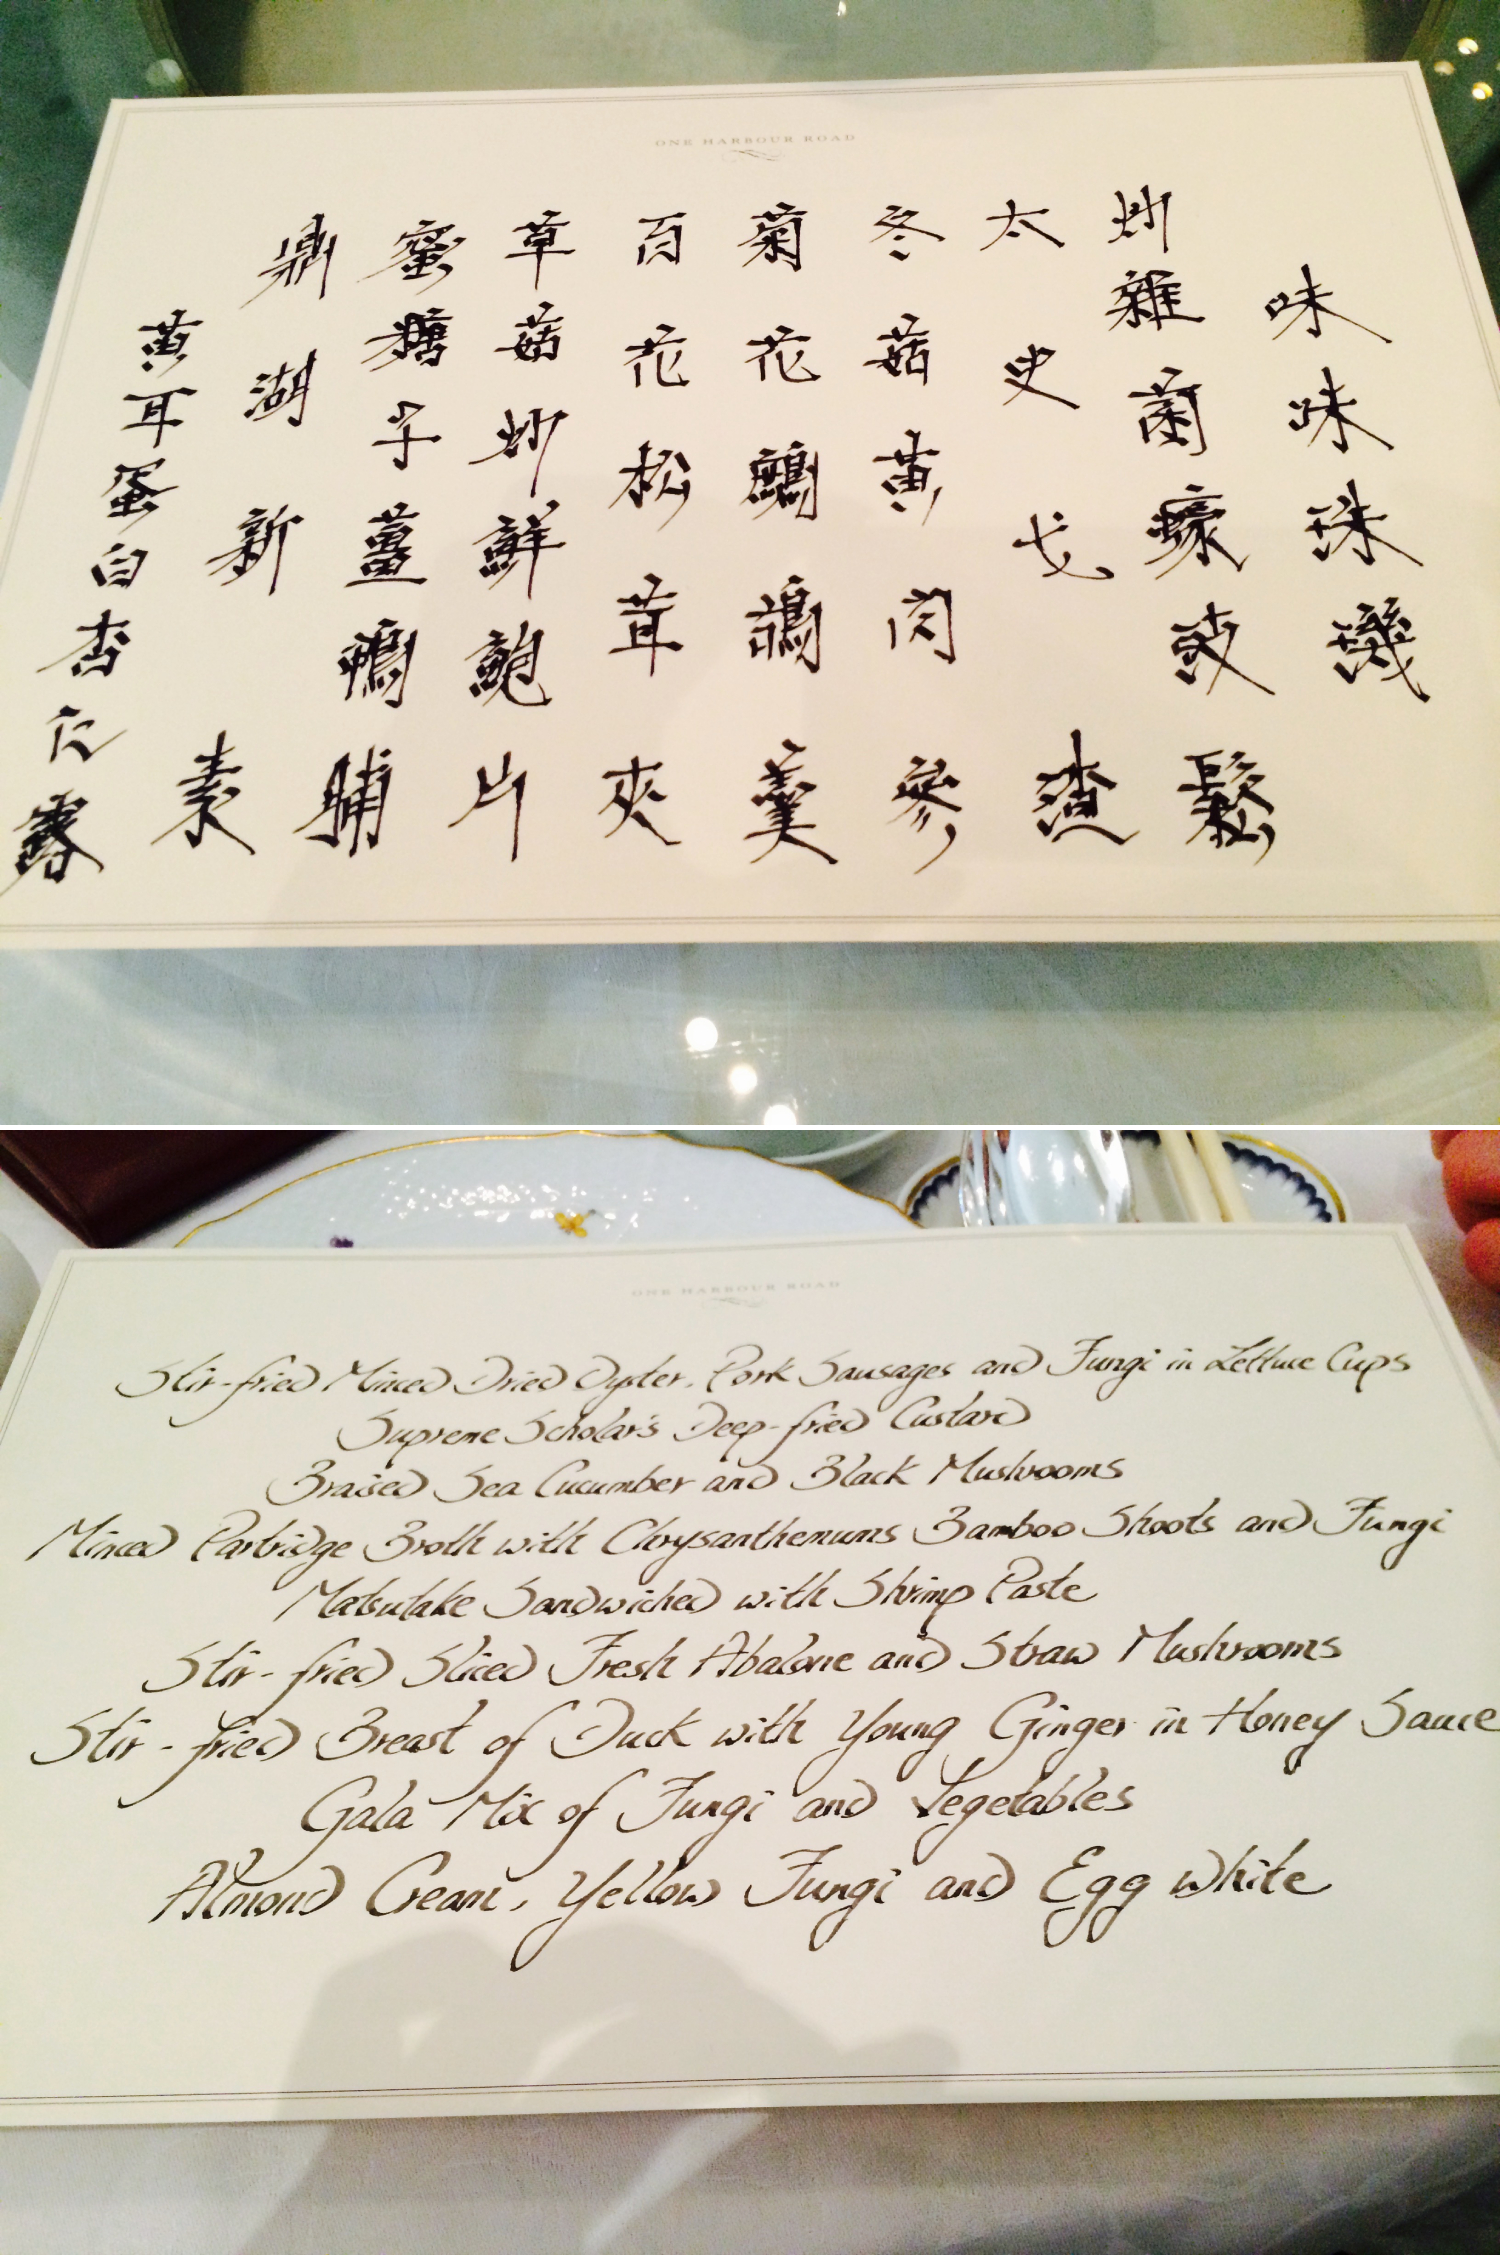 ONE HARBOUR ROAD
味味珠璣
炒雜菌蠔豉鬆
太史戈渣
冬菇黃肉參
菊花鷓鴣羹
百花松茸夾
草菇炒鮮鮑片
蜜糖子薑鴨脯
鼎湖新素
黃耳蛋白杏仁露
ONE HARBOUR ROAD
Stir-fried Minced Dried Oyster, Pork Sausages and Fungi in Lettuce Cups
Supreme Scholar's Deep-fried Custard
Braised Sea Cucumber and Black Mushrooms
Minced Partridge Broth with Chrysanthemums Bamboo Shoots and Fungi
Matsutake Sandwiched with Shrimp Paste
Stir-fried Sliced Fresh Abalone and Straw Mushrooms
Stir-fried Breast of Duck with Young Ginger in Honey Sauce
Gala Mix of Fungi and Vegetables
Almond Cream, Yellow Fungi and Egg White